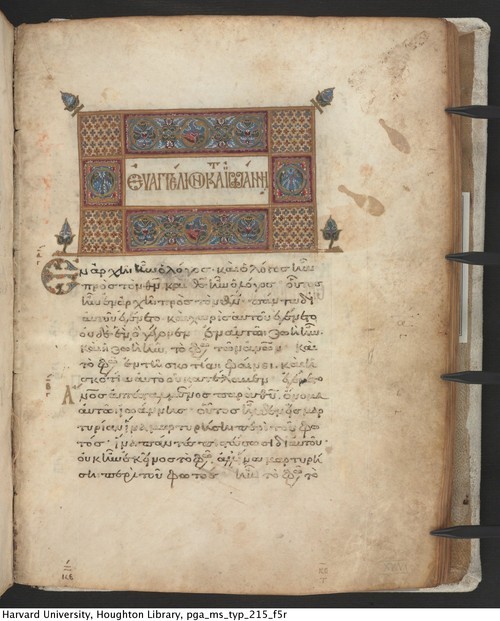 ΕΥΑΓΓΕΛΙΟΝ ΚΑΤΑ ΙΩΑΝΝΗΝ
Ἐν ἀρχῆ ἦν ὁ λόγος· καὶ ὁ λόγος ἦν
πρὸς τὸν θν· καὶ θς ἦν ὁ λόγος· οὗτος
ἦν ἐν ἀρχῆ πρὸς τὸν θν· πάντα δι
αὐτοῦ ἐγένετο· καὶ χωρὶς αὐτοῦ ἐγένετο
οὐδὲ ἓν ὃ γέγονεν· ἐν αὐτῶ ζωὴ ἦν·
καὶ ἡ ζωὴ ἦν τὸ φῶς τῶν ἀνων· καὶ
τὸ φῶς ἐν τῆ σκοτία φαίνει· καὶ ἡ
σκοτία αὐτὸ οὐ κατέλαβεν· ἐγένετο
ἀνος ἀπεσταλμένος παρὰ θυ· ὄνομα
αὐτῶ ἰωάννης· οὗτος ἦλθεν εἰς μαρ
τυρίαν· ἵνα μαρτυρήση περὶ τοῦ φω
τός· ἵνα πάντες πιστεύσωσι δι αὐτοῦ·
οὐκ ἦν ἐκεῖνος τὸ φῶς· ἀλλ ἵνα μαρτυρή
ση περὶ τοῦ φωτός· ἦν τὸ φῶς τὸ
Harvard University, Houghton Library, pga_ms_typ_215_f5r